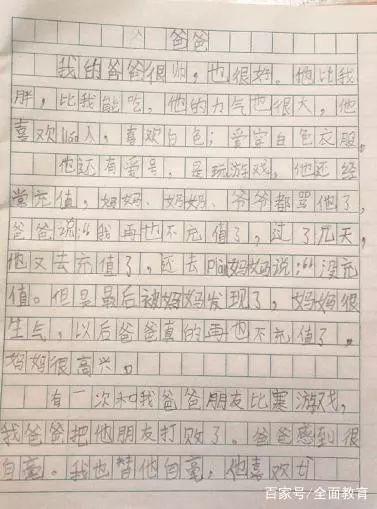 爸爸
我的爸爸很帅,也很好。他比我
胖,比我能吃,他的力气也很大,他
喜欢lia人,喜欢白色;爱穿白色衣服。
他还有爱号,是玩游戏,他还经
常充值,妈妈、奶奶、爷爷都骂他了,
爸爸说:“我再也不充值了,过了几天,
他又去充值了,还去pian妈妈说:“没充
值。但是最后被妈妈发现了,妈妈很
生气,以后爸爸真的再也不充值了。
妈妈很高兴。
有一次和我爸爸朋友比赛游戏,
我爸爸把他朋友打败了。爸爸感到很
自豪。我也替他自豪,他喜欢
百家号/全面教育